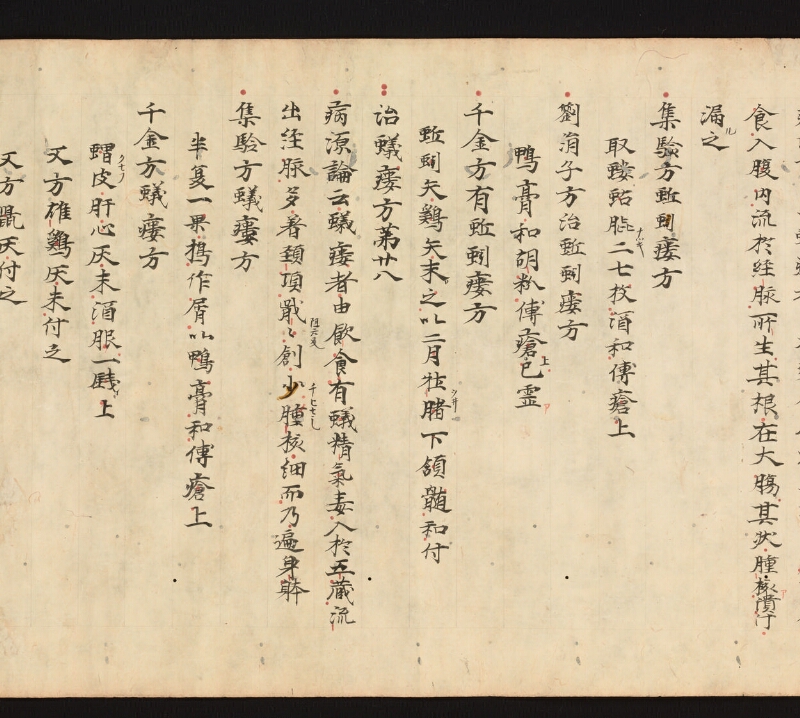 食入腹内流於経脉所生其根在大腸其状腫核潰汁
漏之
集驗方蚯蚓瘻方
取 二七枚酒和傅瘡上
劉涓子方治蚯蚓瘻方
鴨膏和胡粉傅瘡上已霊
千金方有蚯蚓瘻方
蚯蚓矢鷄矢末之以二月牡猪下頷髄和付
治蟻瘻方第廿八
病源論云蟻瘻者由飲食有蟻精氣毒入於五蔵流
出経脉多著頚項戢々創少腫核細而乃遍身躰
集驗方蟻瘻方
半夏一果擣作屑以鴨膏和傅瘡上
千金方蟻瘻方
蝟皮肝心灰末酒服一銭上
又方雄鷄灰末付之
又方 灰付之